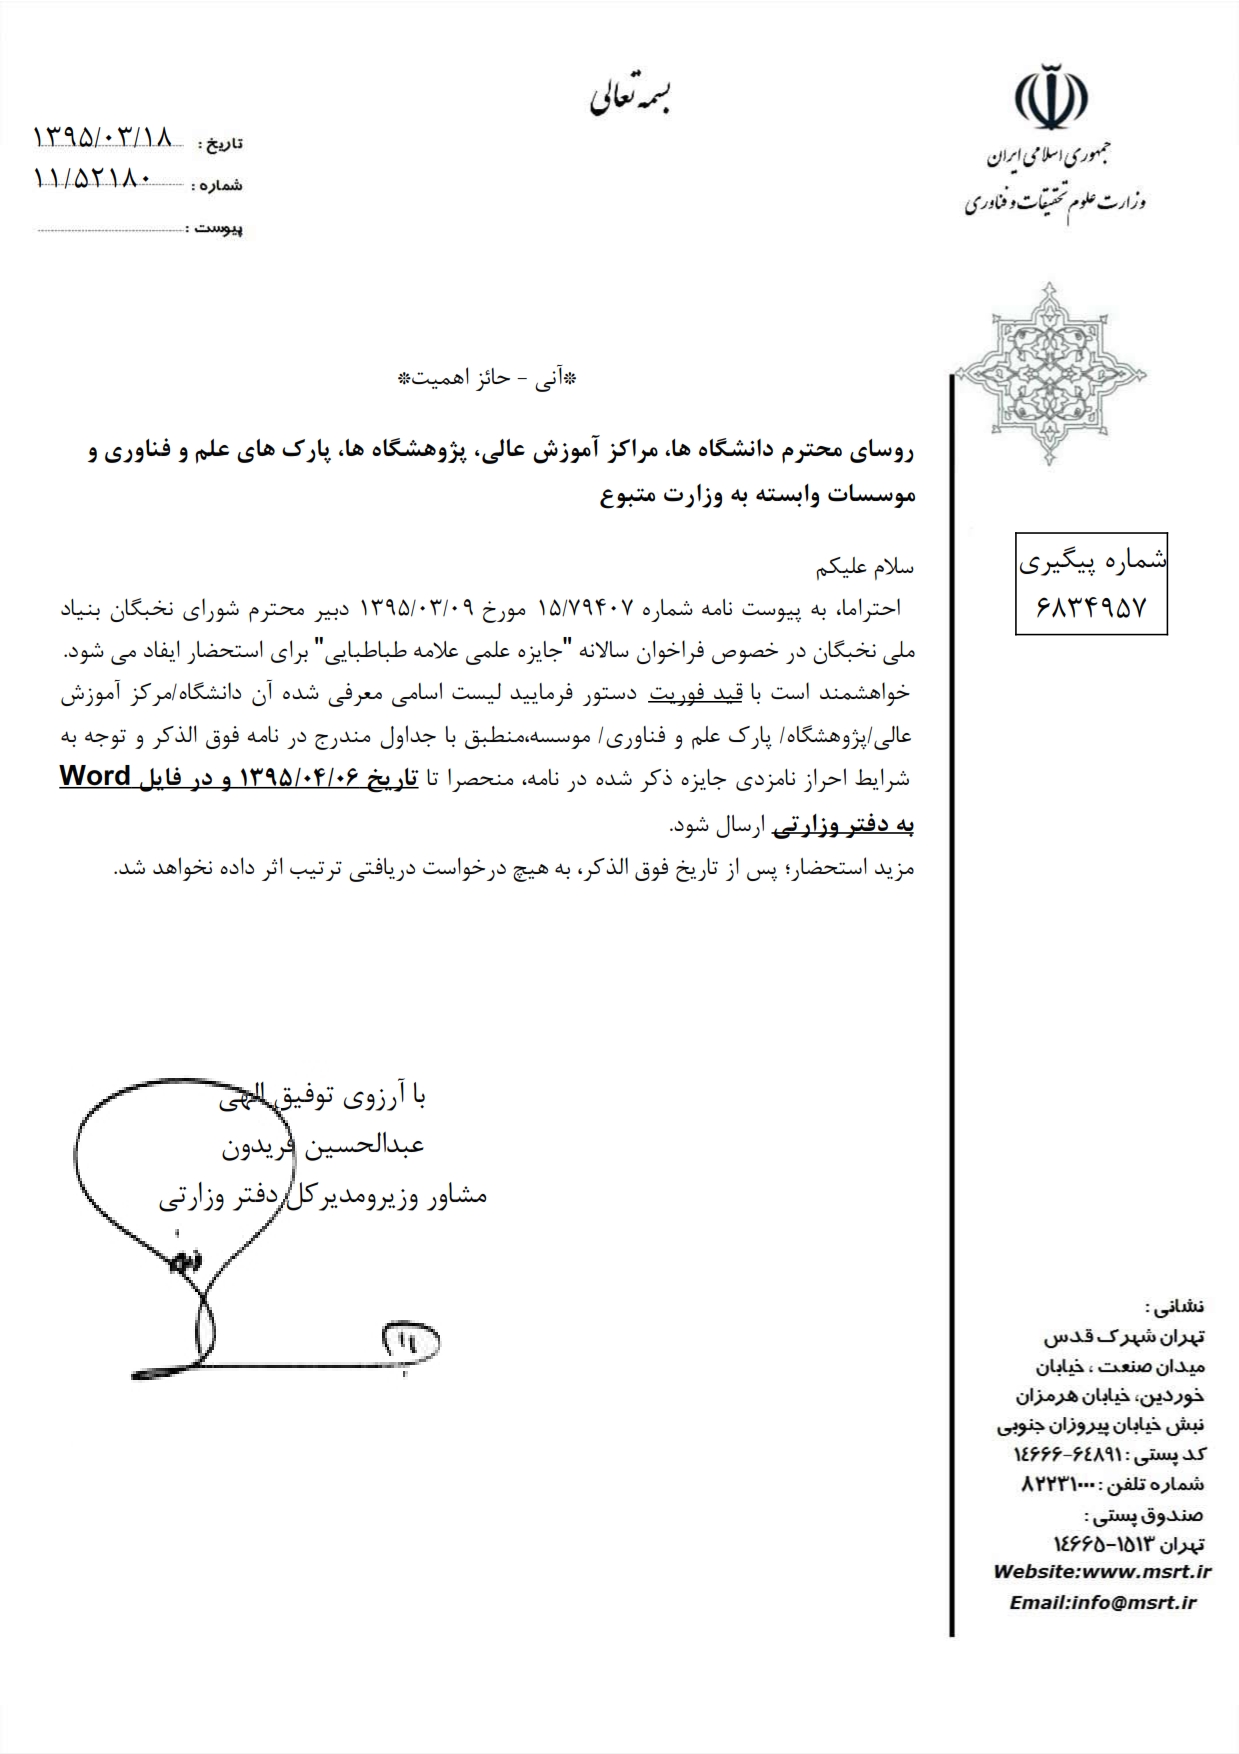 بسمه تعالی
جمهوری اسلامی ایران
وزارت علوم تحقیقات و فناوری
تاریخ : ۱۳۹۵/۰۳/۱۸
شماره : ۱۱/۵۲۱۸۰
پیوست :
*آنی - حائز اهمیت*
روسای محترم دانشگاه ها، مراکز آموزش عالی، پژوهشگاه ها، پارک های علم و فناوری و
موسسات وابسته به وزارت متبوع
شماره پیگیری
۶۸۳۴۹۵۷
سلام علیکم
احتراما، به پیوست نامه شماره ۱۵/۷۹۴۰۷ مورخ ۱۳۹۵/۰۳/۰۹ دبیر محترم شورای نخبگان بنیاد
ملی نخبگان در خصوص فراخوان سالانه "جایزه علمی علامه طباطبایی" برای استحضار ایفاد می شود.
خواهشمند است با قید فوریت دستور فرمایید لیست اسامی معرفی شده آن دانشگاه/مرکز آموزش
عالی/پژوهشگاه/ پارک علم و فناوری/ موسسه،منطبق با جداول مندرج در نامه فوق الذکر و توجه به
شرایط احراز نامزدی جایزه ذکر شده در نامه، منحصرا تا تاریخ ۱۳۹۵/۰۴/۰۶ و در فایل Word
به دفتر وزارتی ارسال شود.
مزید استحضار؛ پس از تاریخ فوق الذکر، به هیچ درخواست دریافتی ترتیب اثر داده نخواهد شد.
با آرزوی توفیق الهی
عبدالحسین فریدون
مشاور وزیرومدیرکل دفتر وزارتی
نشانی :
تهران شهرک قدس
میدان صنعت ، خیابان
خوردین، خیابان هرمزان
نبش خیابان پیروزان جنوبی
کد پستی : ۶۴۸۹۱-۱۴۶۶۶
شماره تلفن : ۸۲۲۳۱۰۰۰
صندوق پستی :
تهران ۱۵۱۳-۱۴۶۶۵
Website:www.msrt.ir
Email:info@msrt.ir